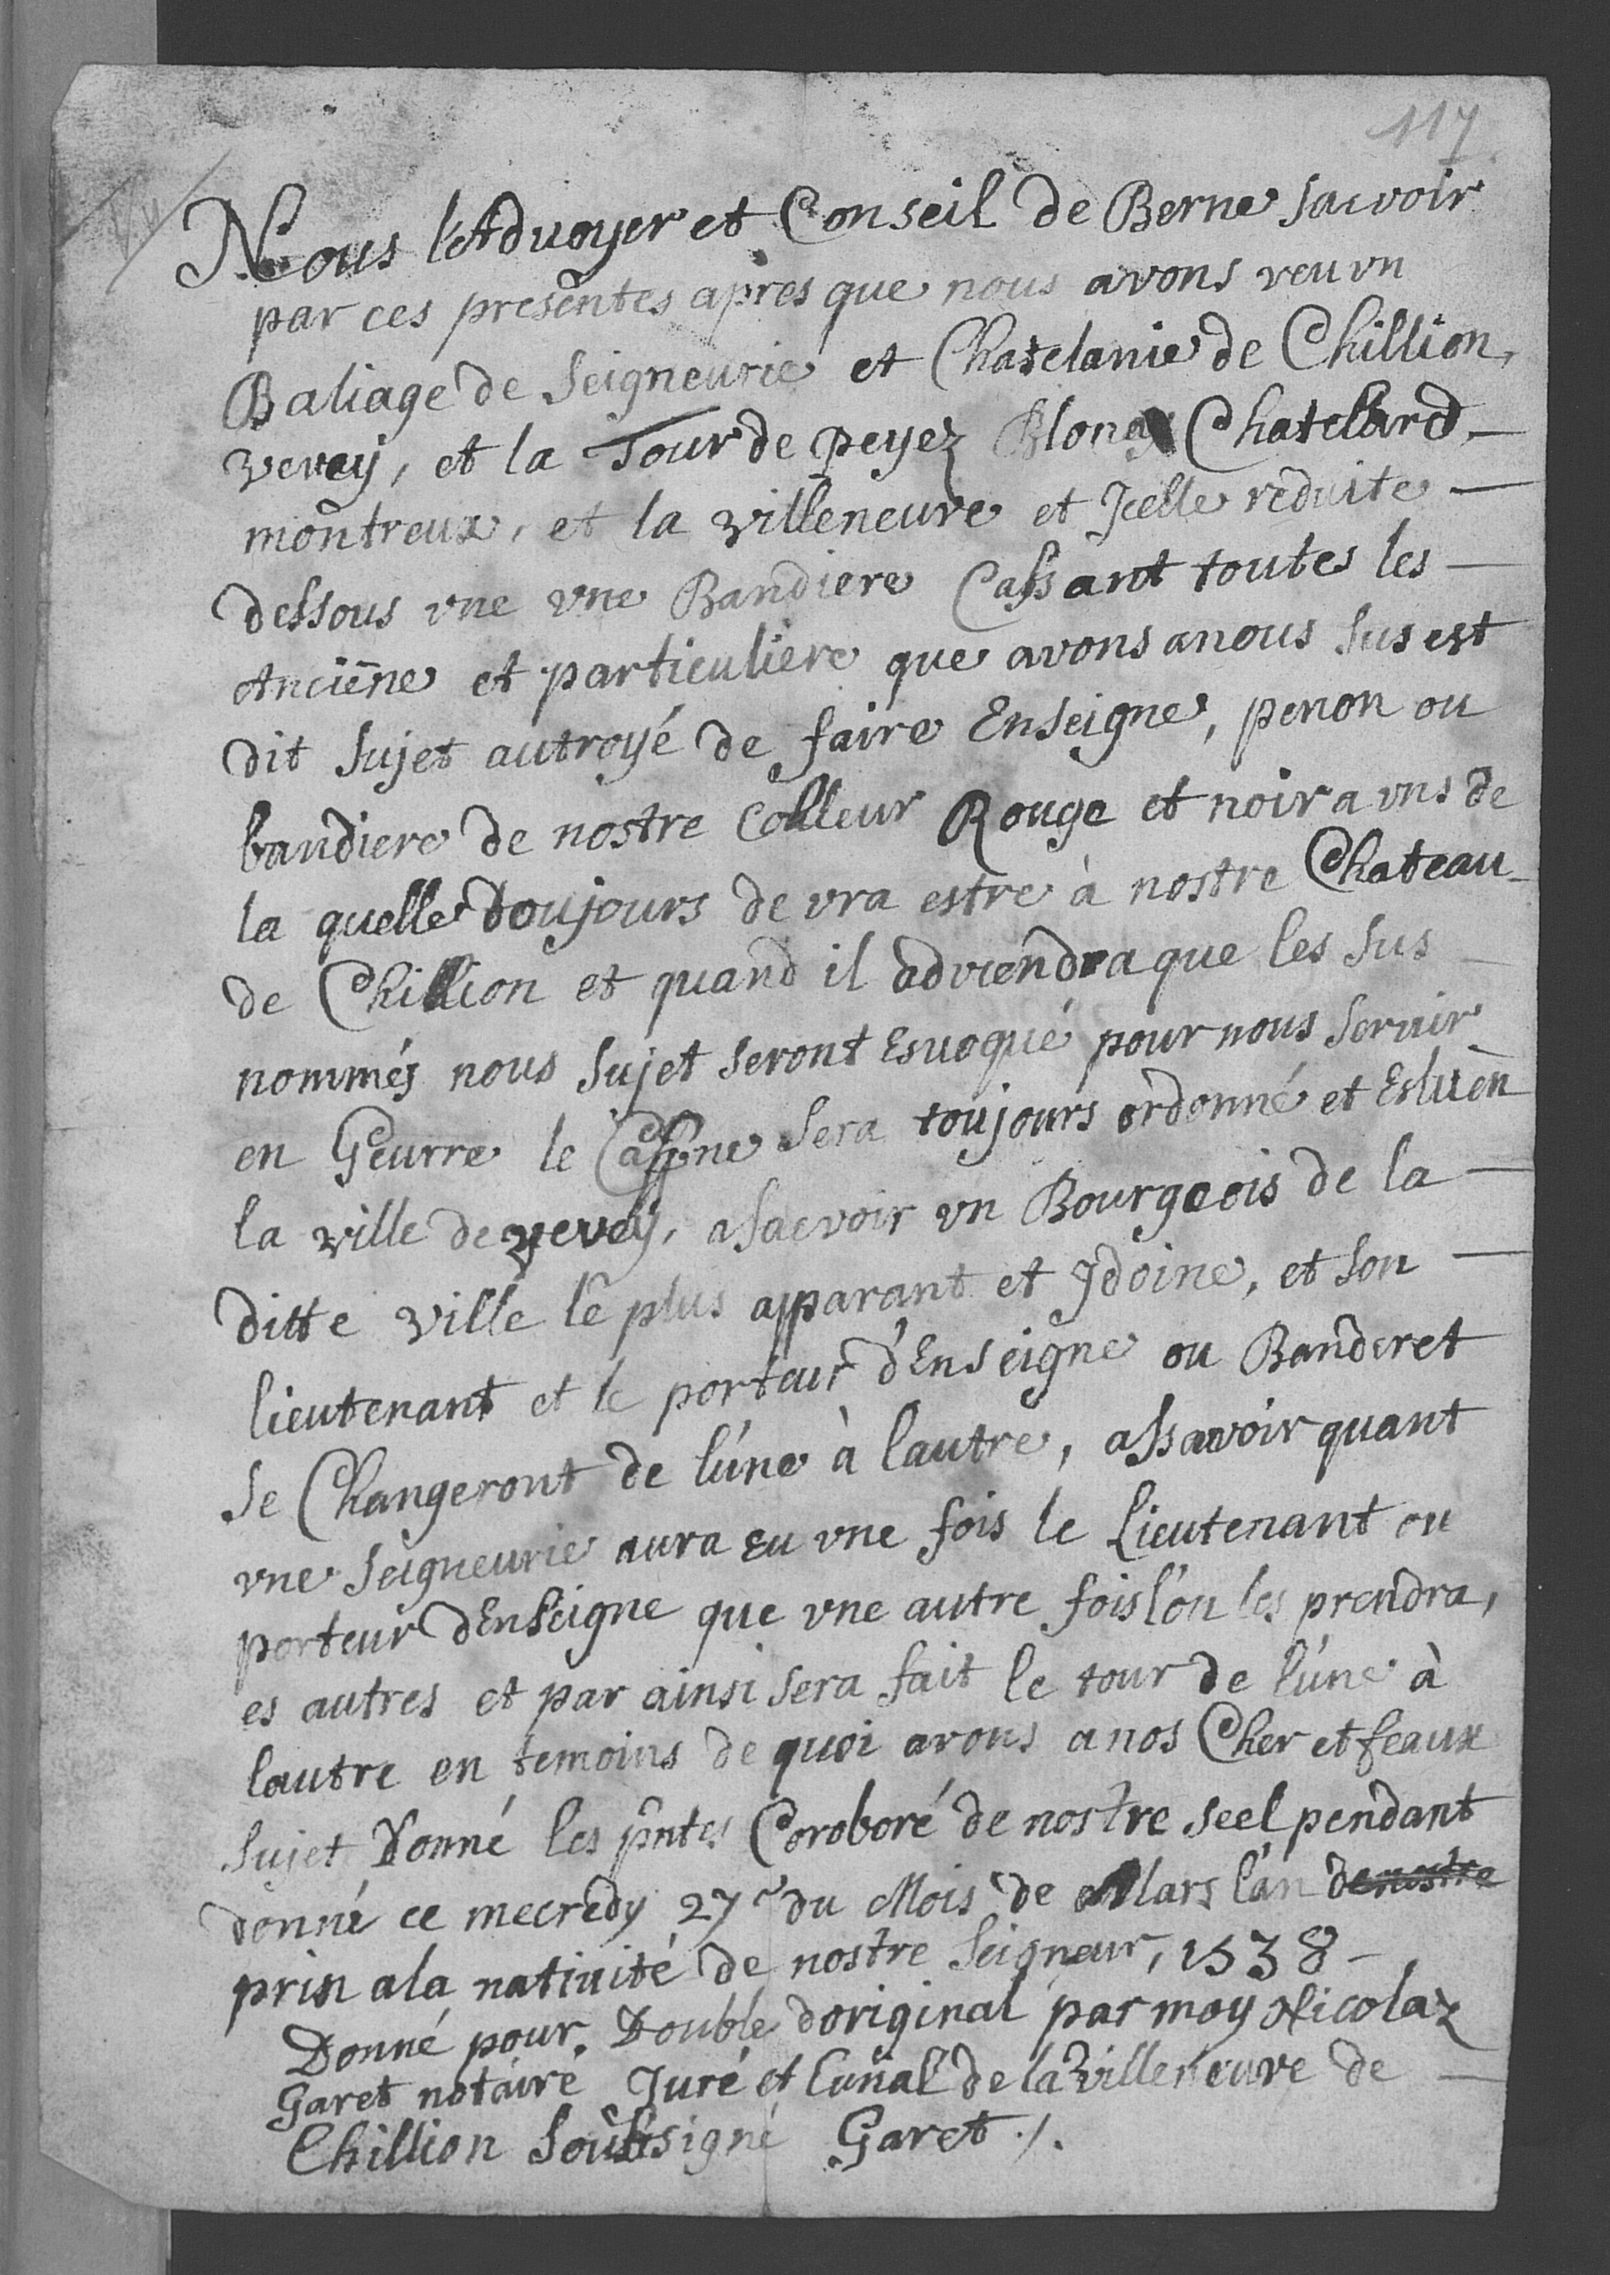 117
Nous l'Advoyer et Conseil de Berne sacvoir
par ces presentes apres que nous avons veu vn
Baliage de Seigneurie et Chatelanie de Chillion,
vevey, et la Tour de peyez Blonay Chatelard
montreux, et la villeneuve et Jcelle reduite
dessous vne vne Bandiere Cassant toutes les
Anciene et particuliere que avons a nous sus est
dit sujet autroyé de faire Enseigne, penon ou
bandiere de nostre Colleur Rouge et noir a vns de
la quelle toujours de vra estre à nostre Chateau
de Chillion et quand il adviendra que les sus
nommés nous sujet seront Esvoqué pour nous servir
en Geurre le Cappne sera toujours ordonné et Esluën
la ville de vevey, asacvoir vn Bourgeois de la
ditte ville le plus apparant et Jdoine, et son
lieutenant et le porteur d'Enseigne ou Banderet
se Changeront de l'une à lautre, assavoir quant
vne seigneurie aura eu vne fois le Lieutenant ou
porteur dEnseigne que vne autre fois l'ou les prendra,
es autres et par ainsi sera fait le tour de l'une à
lautre en temoins de quoi avons a nos Cher et feaux
sujet Donné les pntes Coroboré de nostre seel pendant
donné ce mecredy 27e du Mois de Mars l'an de nostre
prin a la nativité de nostre Seigneur, 1538
Donné pour Double doriginal par moy Nicolaz
Garet notaire Juré et Curial de la Villeneuve de
Chillion Soussigné Garet ./.